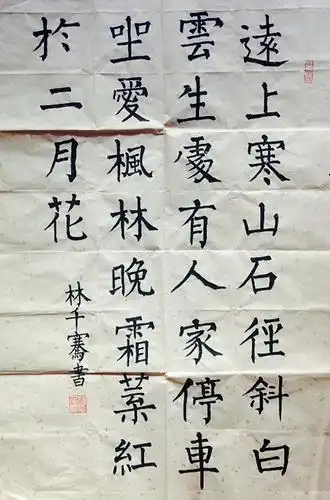 遠上寒山石徑斜白
雲生處有人家停車
坐愛楓林晚霜葉紅
於二月花
林千騫書